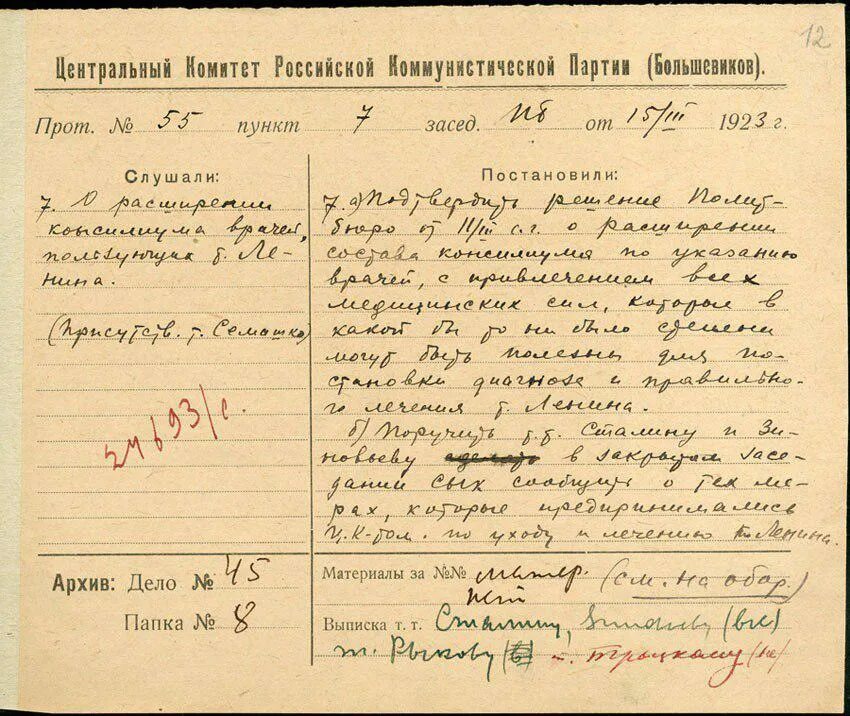 12
Центральный Комитет Российской Коммунистической Партии (Большевиков).
Прот. № 55 пункт 7 засед. ПБ от 15/III 1923 г.
Слушали:
7. О расширении
консилиума врачей,
пользующих т. Ле-
нина.
(Присутств. т. Семашко)
24693/с.
Постановили:
7. а) Подтвердить решение Полит-
бюро от 11/III с.г. о расширении
состава консилиума по указанию
врачей, с привлечением всех
медицинских сил, которые в
какой бы то ни было степени
могут быть полезны для по-
становки диагноза и правильно-
го лечения т. Ленина.
б) Поручить т.т. Сталину и Зи-
новьеву в закрытом засе-
дании сообщить о тех ме-
рах, которые предпринимались
Ц.К-том. по уходу и лечению т. Ленина.
Архив: Дело № 45
Папка № 8
Материалы за №№ (см. на обор.)
Выписка т. т. Сталину, Зиновьеву (вк)
т. Рыкову т. Троцкому